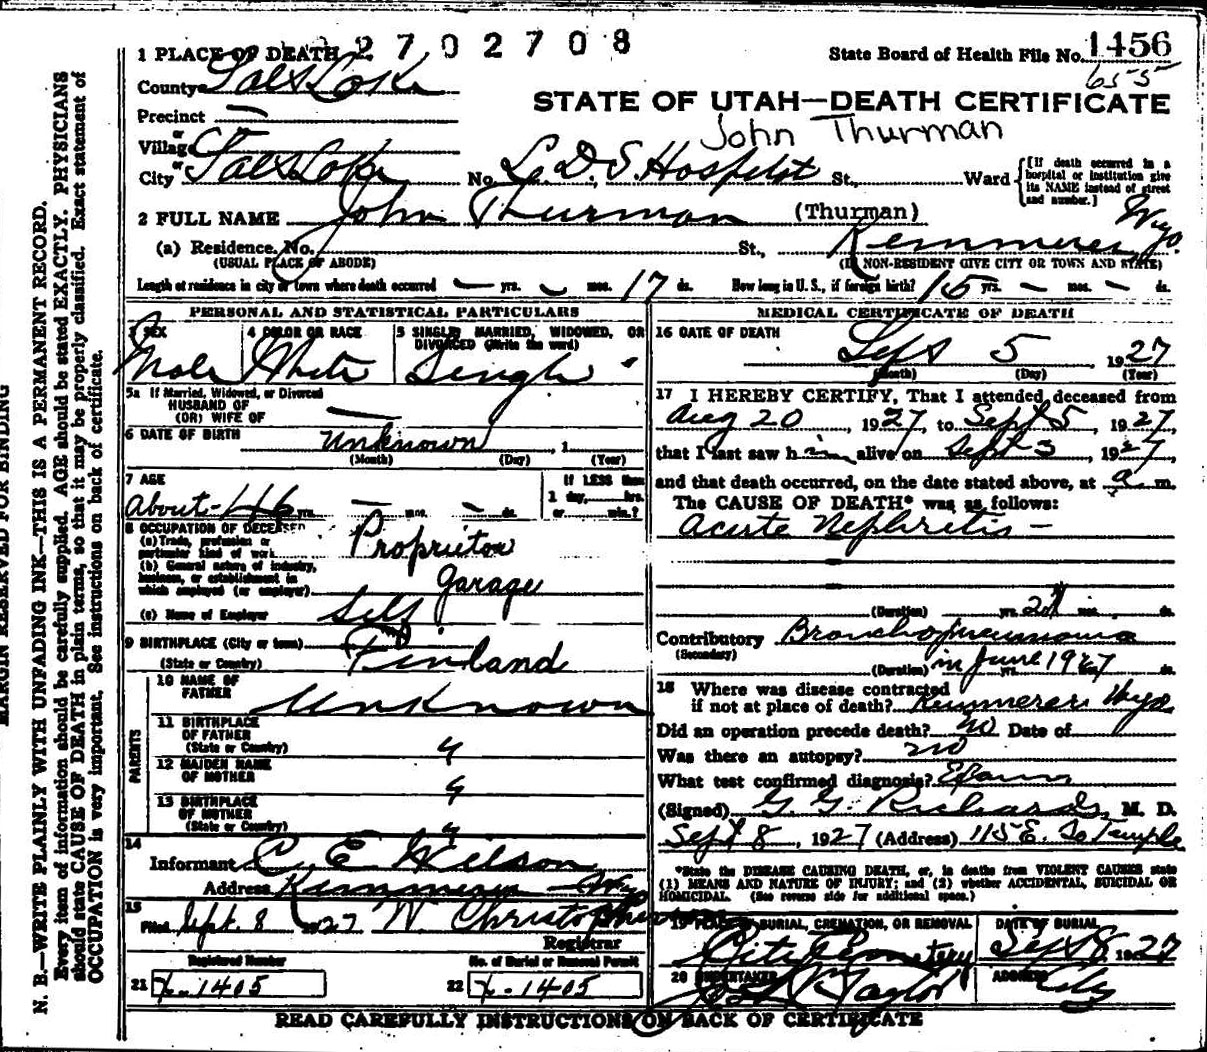 2702708
1 PLACE OF DEATH
State Board of Health File No. 1456
6555
County Salt Lake
STATE OF UTAH—DEATH CERTIFICATE
Precinct —
John Thurman
or
Village
or
City Salt Lake No. L. D. S. Hospital St., Ward
[If death occurred in a hospital or institution give its NAME instead of street and number.]
2 FULL NAME John Thurman (Thurman)
(a) Residence. No. St., Kemmerer, Wyo.
(USUAL PLACE OF ABODE) (IF NON-RESIDENT GIVE CITY OR TOWN AND STATE)
Length of residence in city or town where death occurred — yrs. — mos. 17 ds. How long in U. S., if foreign birth? 15 yrs. — mos. — ds.
PERSONAL AND STATISTICAL PARTICULARS
3 SEX Male
4 COLOR OR RACE White
5 SINGLE, MARRIED, WIDOWED, OR DIVORCED (Write the word) Single
5a If Married, Widowed, or Divorced
HUSBAND OF
(OR) WIFE OF —
6 DATE OF BIRTH unknown, 1
(Month) (Day) (Year)
7 AGE
About 46 yrs. — mos. — ds.
If LESS than 1 day, hrs. or min.?
8 OCCUPATION OF DECEASED
(a) Trade, profession or particular kind of work Proprietor
(b) General nature of industry, business, or establishment in which employed (or employer) Garage
(c) Name of Employer Self
9 BIRTHPLACE (City or town)
(State or Country) Finland
PARENTS
10 NAME OF FATHER Unknown
11 BIRTHPLACE OF FATHER (State or Country) "
12 MAIDEN NAME OF MOTHER "
13 BIRTHPLACE OF MOTHER (State or Country) "
14
Informant C. E. Wilson
Address Kemmerer Wyo
15
Filed Sept. 8 1927 W Christopherson
Registrar
Registered Number
21 X-1405
No. of Burial or Removal Permit
22 X-1405
MEDICAL CERTIFICATE OF DEATH
16 DATE OF DEATH
Sept 5 1927
(Month) (Day) (Year)
17 I HEREBY CERTIFY, That I attended deceased from
Aug 20, 1927, to Sept 5, 1927,
that I last saw him alive on Sept 3, 1927,
and that death occurred, on the date stated above, at a m.
The CAUSE OF DEATH* was as follows:
Acute Nephritis —
(Duration) yrs. mos. ds.
Contributory Bronchopneumonia
(Secondary)
(Duration) in June 1927 yrs. ds.
18 Where was disease contracted
if not at place of death? Kemmerer Wyo
Did an operation precede death? no Date of
Was there an autopsy? no
What test confirmed diagnosis? Exam
(Signed) G. G. Richards, M. D.
Sept 8, 1927 (Address) 115 E. So Temple
*State the DISEASE CAUSING DEATH, or, in deaths from VIOLENT CAUSES state
(1) MEANS AND NATURE OF INJURY; and (2) whether ACCIDENTAL, SUICIDAL OR
HOMICIDAL. (See reverse side for additional space.)
19 PLACE OF BURIAL, CREMATION, OR REMOVAL
City Cemetery
DATE OF BURIAL
Sept 8 1927
20 UNDERTAKER
Jos. Wm Taylor
ADDRESS
City
READ CAREFULLY INSTRUCTIONS ON BACK OF CERTIFICATE
MARGIN RESERVED FOR BINDING
N. B.—WRITE PLAINLY WITH UNFADING INK—THIS IS A PERMANENT RECORD.
Every item of information should be carefully supplied. AGE should be stated EXACTLY. PHYSICIANS
should state CAUSE OF DEATH in plain terms, so that it may be properly classified. Exact statement of
OCCUPATION is very important. See instructions on back of certificate.